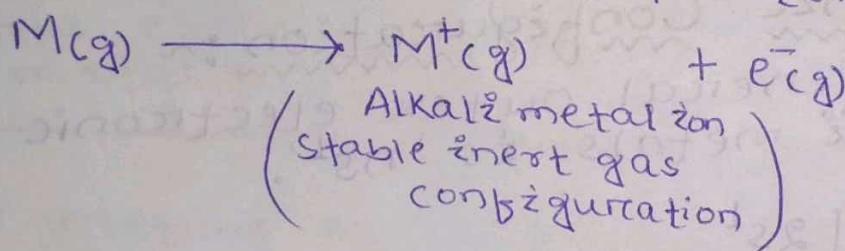 M(g) ⟶ M⁺(g) + e⁻(g)
(Alkali metal ion
stable inert gas
configuration)